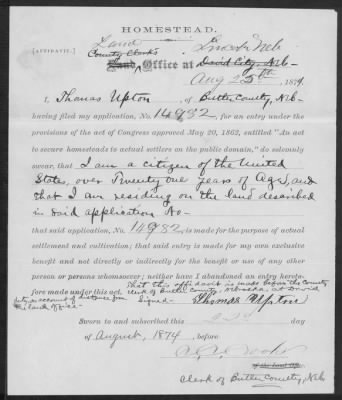 HOMESTEAD.
Land Lincoln Neb
[AFFIDAVIT.] County Clerks Land Office at David City, Neb-
Aug 25th, 1874.
I, Thomas Upton, of Butler County, Neb-
having filed my application, No. 14982, for an entry under
the provisions of the act of Congress approved May 20, 1862, entitled "An act
to secure homesteads to actual settlers on the public domain," do solemnly
swear, that I am a citizen of the United
States, over Twenty one years of Age, and
that I am residing on the land described
in said application No-
that said application, No. 14982, is made for the purpose of actual
settlement and cultivation; that said entry is made for my own exclusive
benefit and not directly or indirectly for the benefit or use of any other
person or persons whomsoever; neither have I abandoned an entry hereto-
fore made under this act. That this affidavit is made before the County
clerk of Butler County, Nebraska, at David
City on account of distance from
the land Office- Signed- Thomas Upton
Sworn to and subscribed this day
of August, 1874, before
of the Land Office.
Clerk of Butler County, Neb